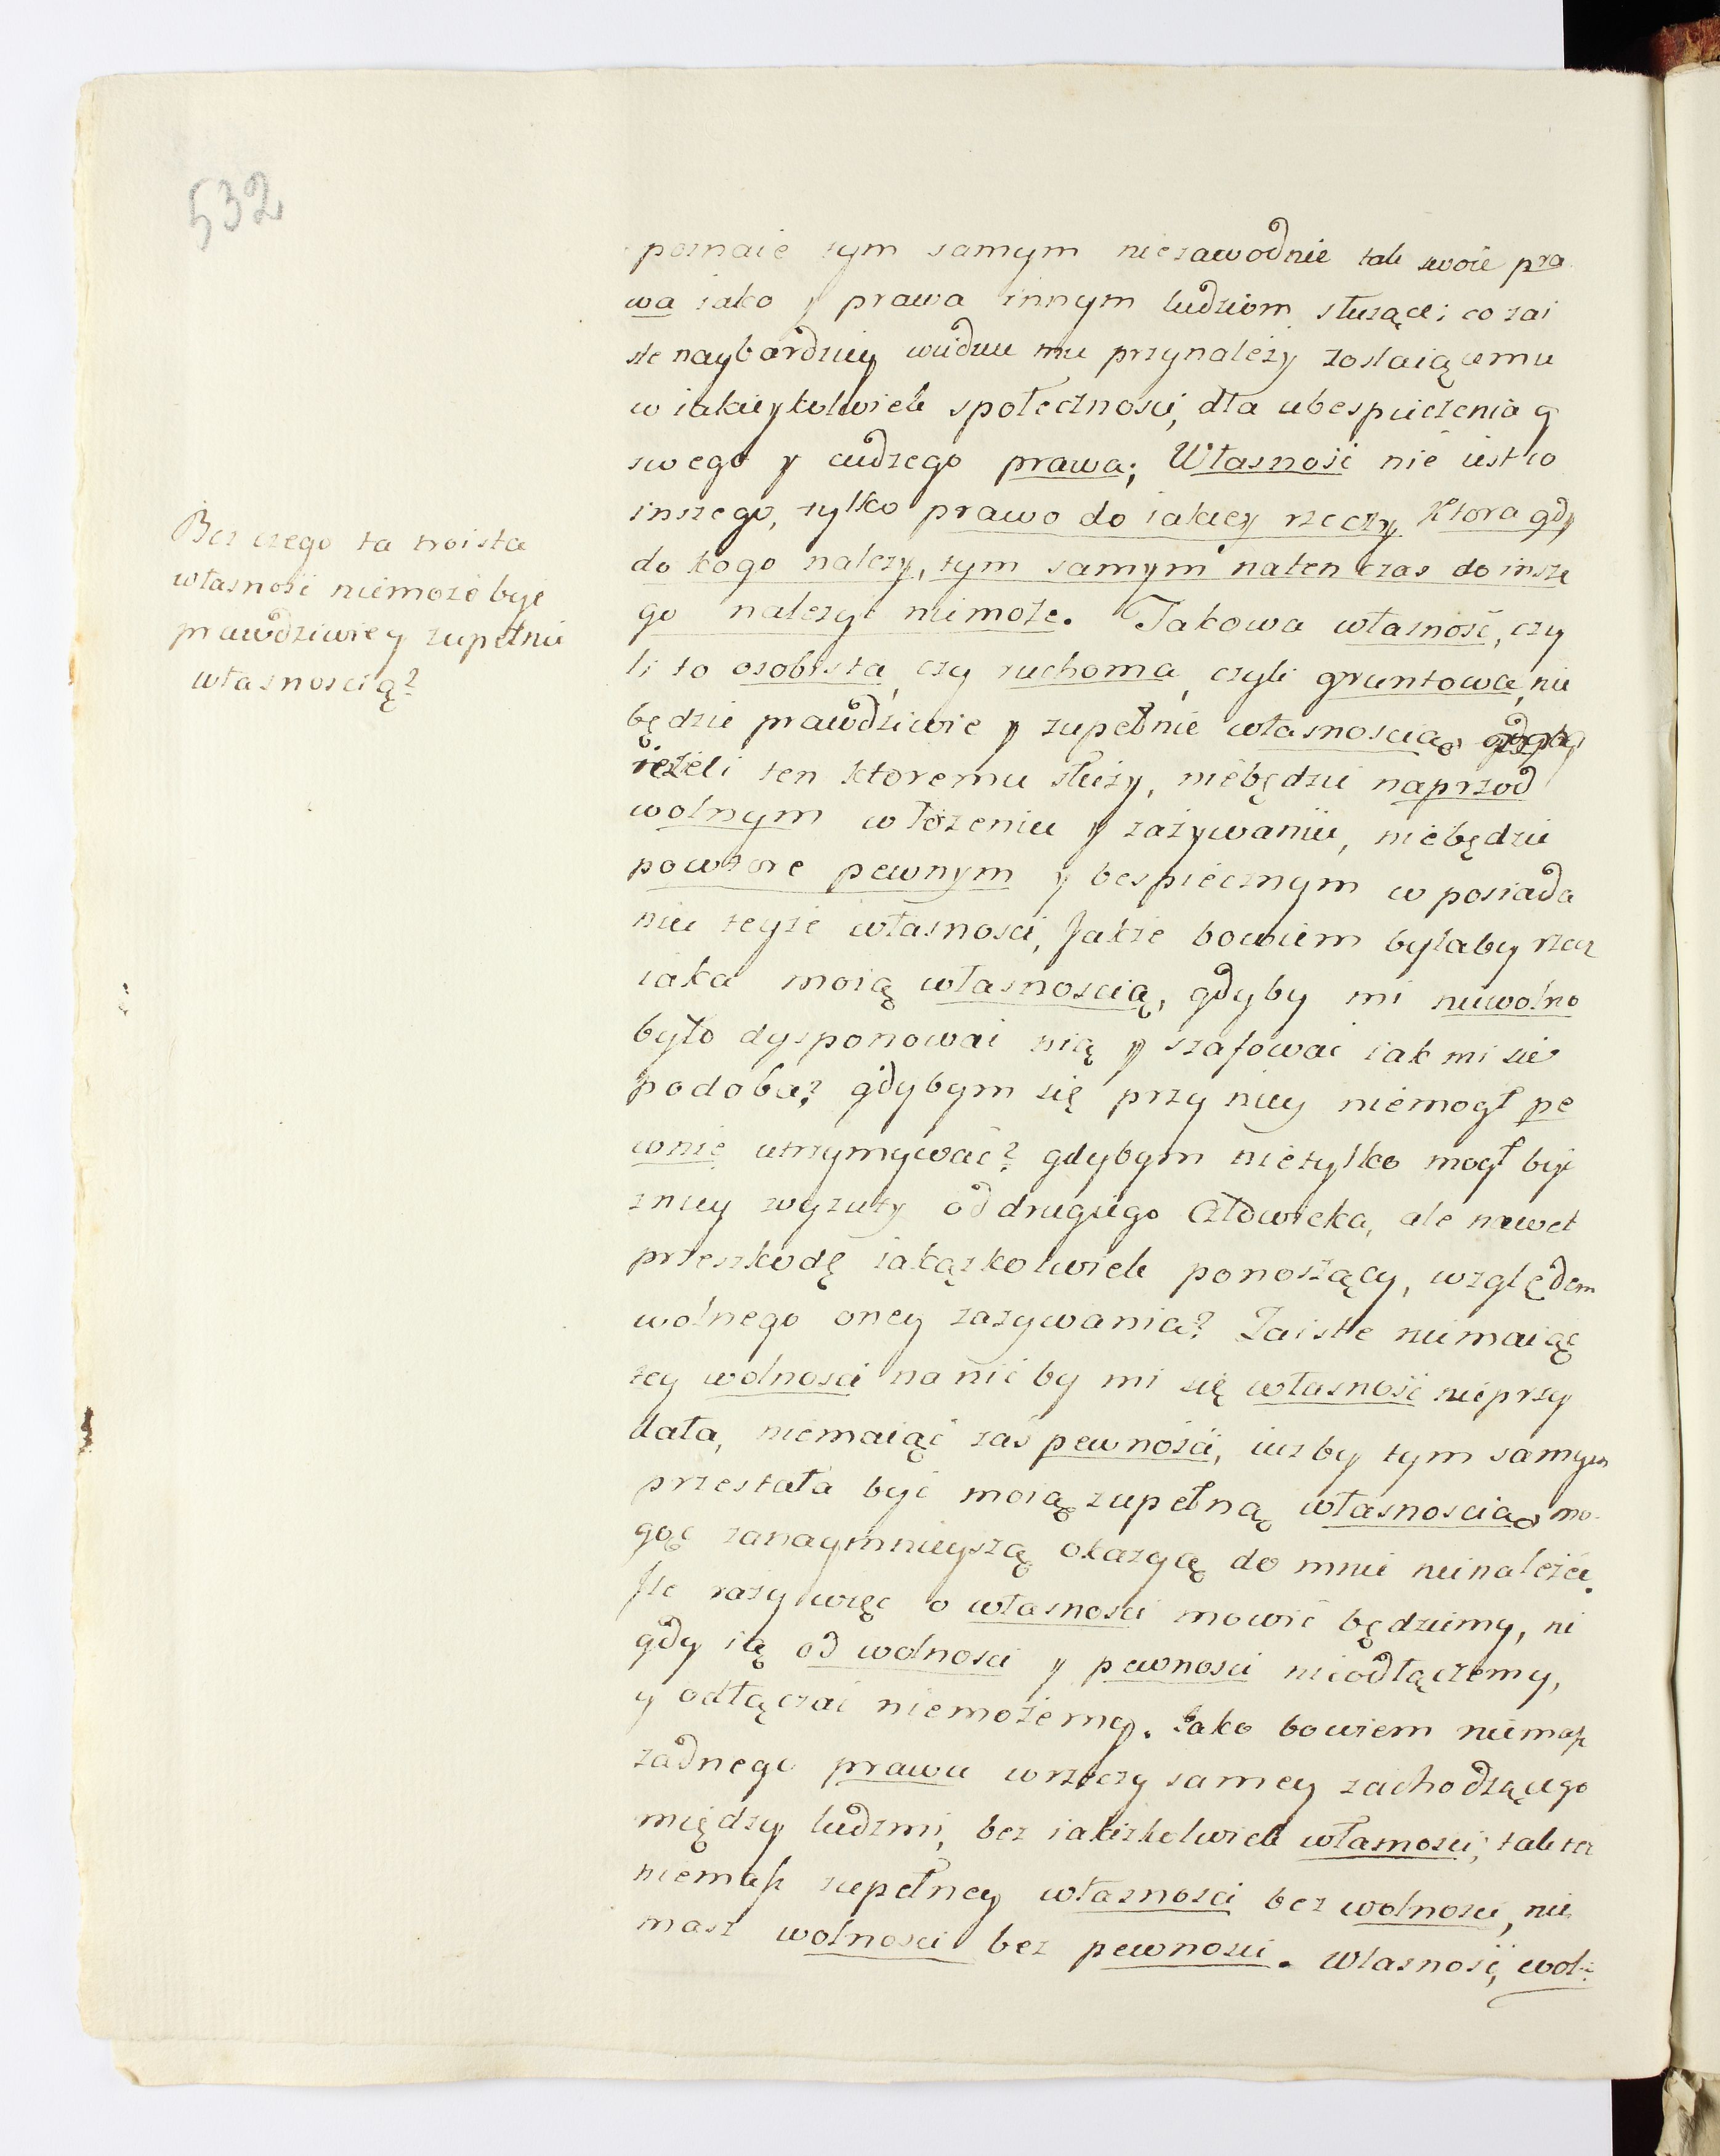 532
poznaie tym samym niezawodnie tak swoie pra
wa iako y prawa innym ludziom służące; co zai
ste naybardziey wiedzieć mu przynależy zostaiącemu
w iakieykolwiek społecznosci, dla ubespieczenia
swego y cudzego prawa; Własność nie iest co
inszego, tylko prawo do iakiey rzeczy ktora gdy
do kogo należy, tym samym naten czas do insze
go należyć niemoże. Takowa własność, czy
li to osobista, czy ruchoma, czyli gruntowa, nie
będzie prawdziwie y zupełnie własnoscią
ieżeli ten ktoremu służy, niebędzie naprzod
wolnym w łożeniu y zażywaniu, niebędzie
powtore pewnym y bespiecznym w posiada
niu teyże własnosci, Jakże bowiem byłaby rzecz
iaka moią własnoscią, gdyby mi niewolno
było dysponować nią y szafować iak mi sie
podoba? gdybym się przy niey niemogł pe
wnie utrzymywać? gdybym nietylko mogł być
zniey wyzuty od drugiego Człowieka, ale nawet
przeszkodę iakążkolwiek ponoszący, względem
wolnego oney zażywania? Zaiste niemaiąc
tey wolnosci na nic by mi się własność nieprzy
dała, niemaiąc zaś pewnosci, iuż by tym samym
przestała być moią zupełną własnoscią, mo-
gąc zanaymnieyszą okazyą do mnie nienależeć.
Ile razy więc o własnosci mowić będziemy, ni
gdy ią od wolnosci y pewnosci nieodłączemy,
y odłączać niemożemy. Jako bowiem niemasz
żadnego prawa w rzeczy samey zachodzącego
między ludzmi, bez iakiżkolwiek własnosci; tak też
niemasz zupełney własnosci bez wolnosci, nie
masz wolnosci bez pewnosci. Własność, wol-
Bez czego ta troista
własność niemoże być
prawdziwie y zupełnie
własnoscią?